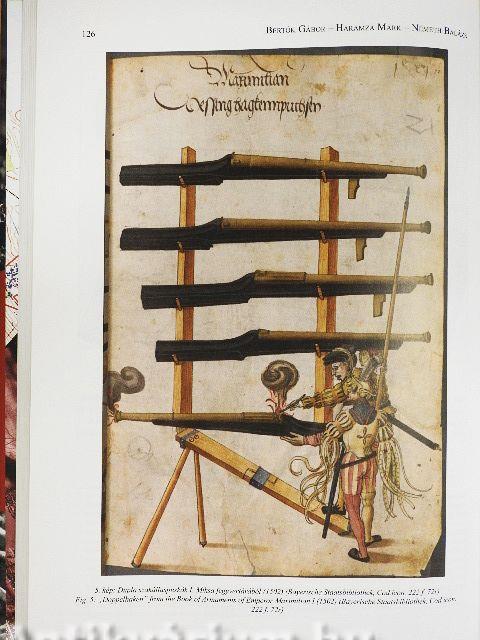 126
BERTÓK GÁBOR – HARAMZA MÁRK – NÉMETH BALÁZS
Maximilian
Messing hagkenpuchsen
5. kép: Dupla szakállaspuskák I. Miksa fegyverkönyvéből (1502) (Bayerische Staatsbibliothek, Cod.icon. 222 f. 72r)
Fig. 5: „Doppelhaken” from the Book of Armaments of Emperor Maximilian I (1502) (Bayerische Staatsbibliothek, Cod.icon.
222 f. 72r)